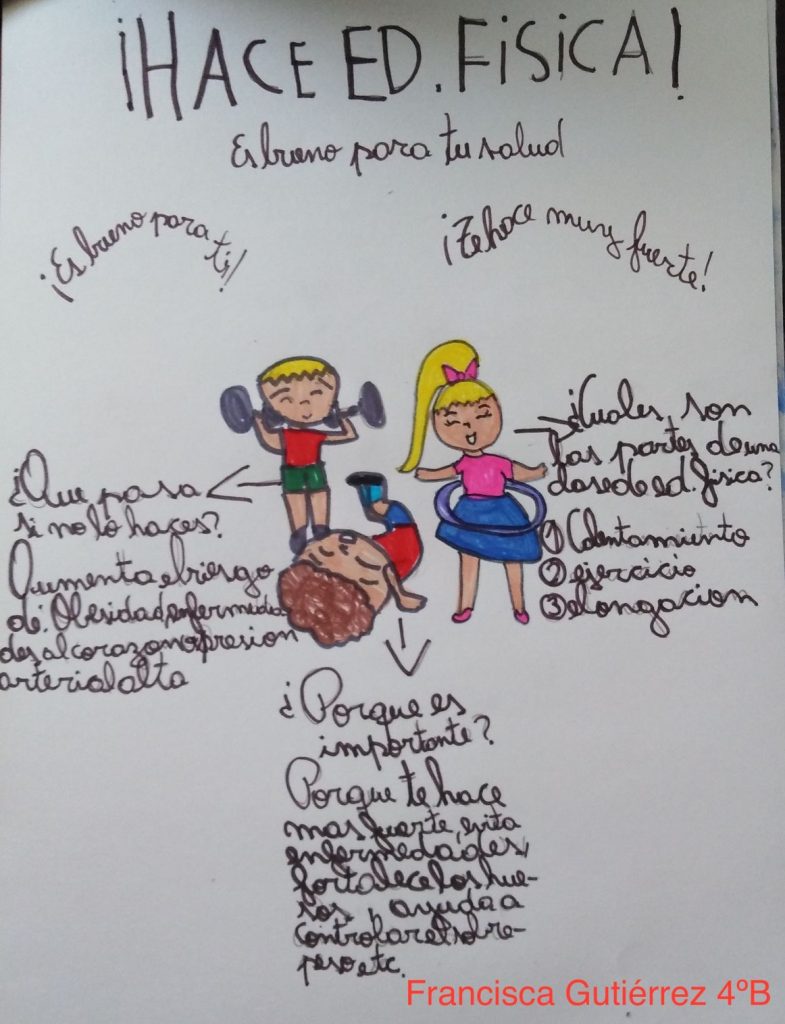 ¡HACE ED. FISICA!
Es bueno para tu salud
¡Es bueno para ti!
¡Te hace muy fuerte!
¿Que pasa
si no lo haces?
Aumenta el riesgo
de: Obesidad, enfermeda-
des al corazon o presion
arterial alta
¿Cuales son
las partes de una
clase de ed. fisica?
① Calentamiento
② ejercicio
③ elongacion
¿Porque es
importante?
Porque te hace
mas fuerte, evita
enfermedades,
fortalece los hue-
sos, ayuda a
controlar el sobre-
peso etc.
Francisca Gutiérrez 4ºB